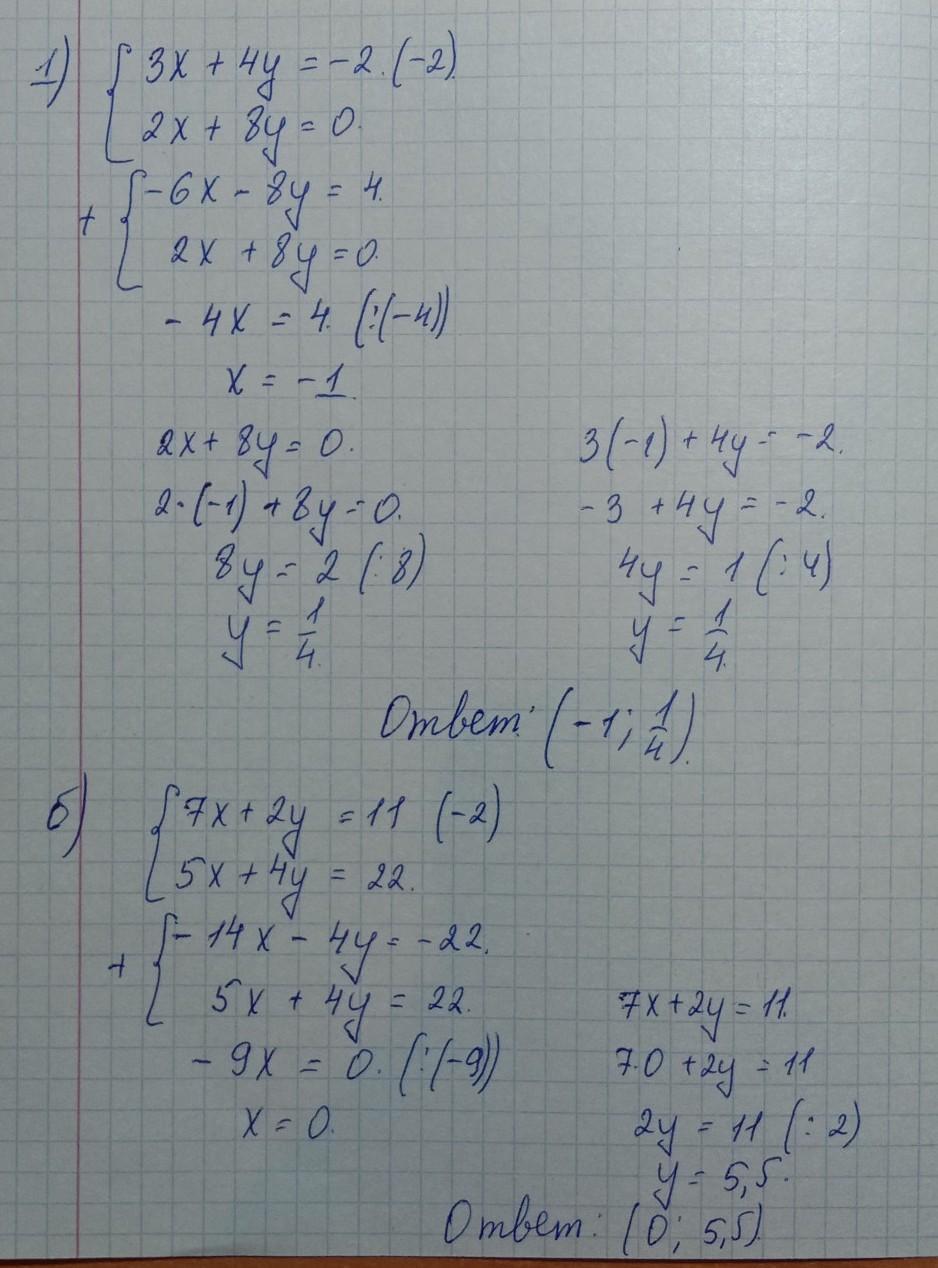 1) { 3x + 4y = -2 · (-2)
2x + 8y = 0.
+ { -6x - 8y = 4.
2x + 8y = 0.
- 4x = 4. (:(-4))
x = -1.
2x + 8y = 0.
2·(-1) + 8y = 0.
8y = 2 (: 8)
y = 1/4.
3(-1) + 4y = -2.
-3 + 4y = -2.
4y = 1 (: 4)
y = 1/4.
Ответ: (-1; 1/4).
б) { 7x + 2y = 11 (-2)
5x + 4y = 22.
+ { - 14x - 4y = -22.
5x + 4y = 22.
- 9x = 0. (:(-9))
x = 0.
7x + 2y = 11.
7·0 + 2y = 11
2y = 11 (: 2)
y = 5,5.
Ответ: (0; 5,5).